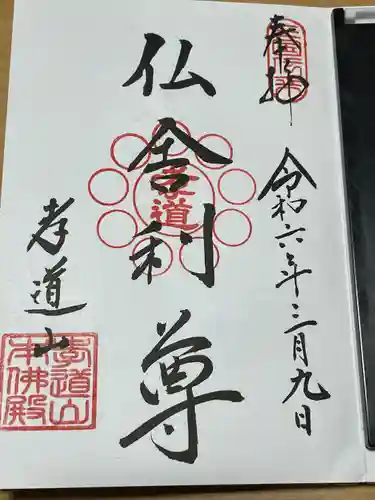 奉拝
令和六年三月九日
仏舎利尊
孝道
孝道山
孝道山
本佛殿